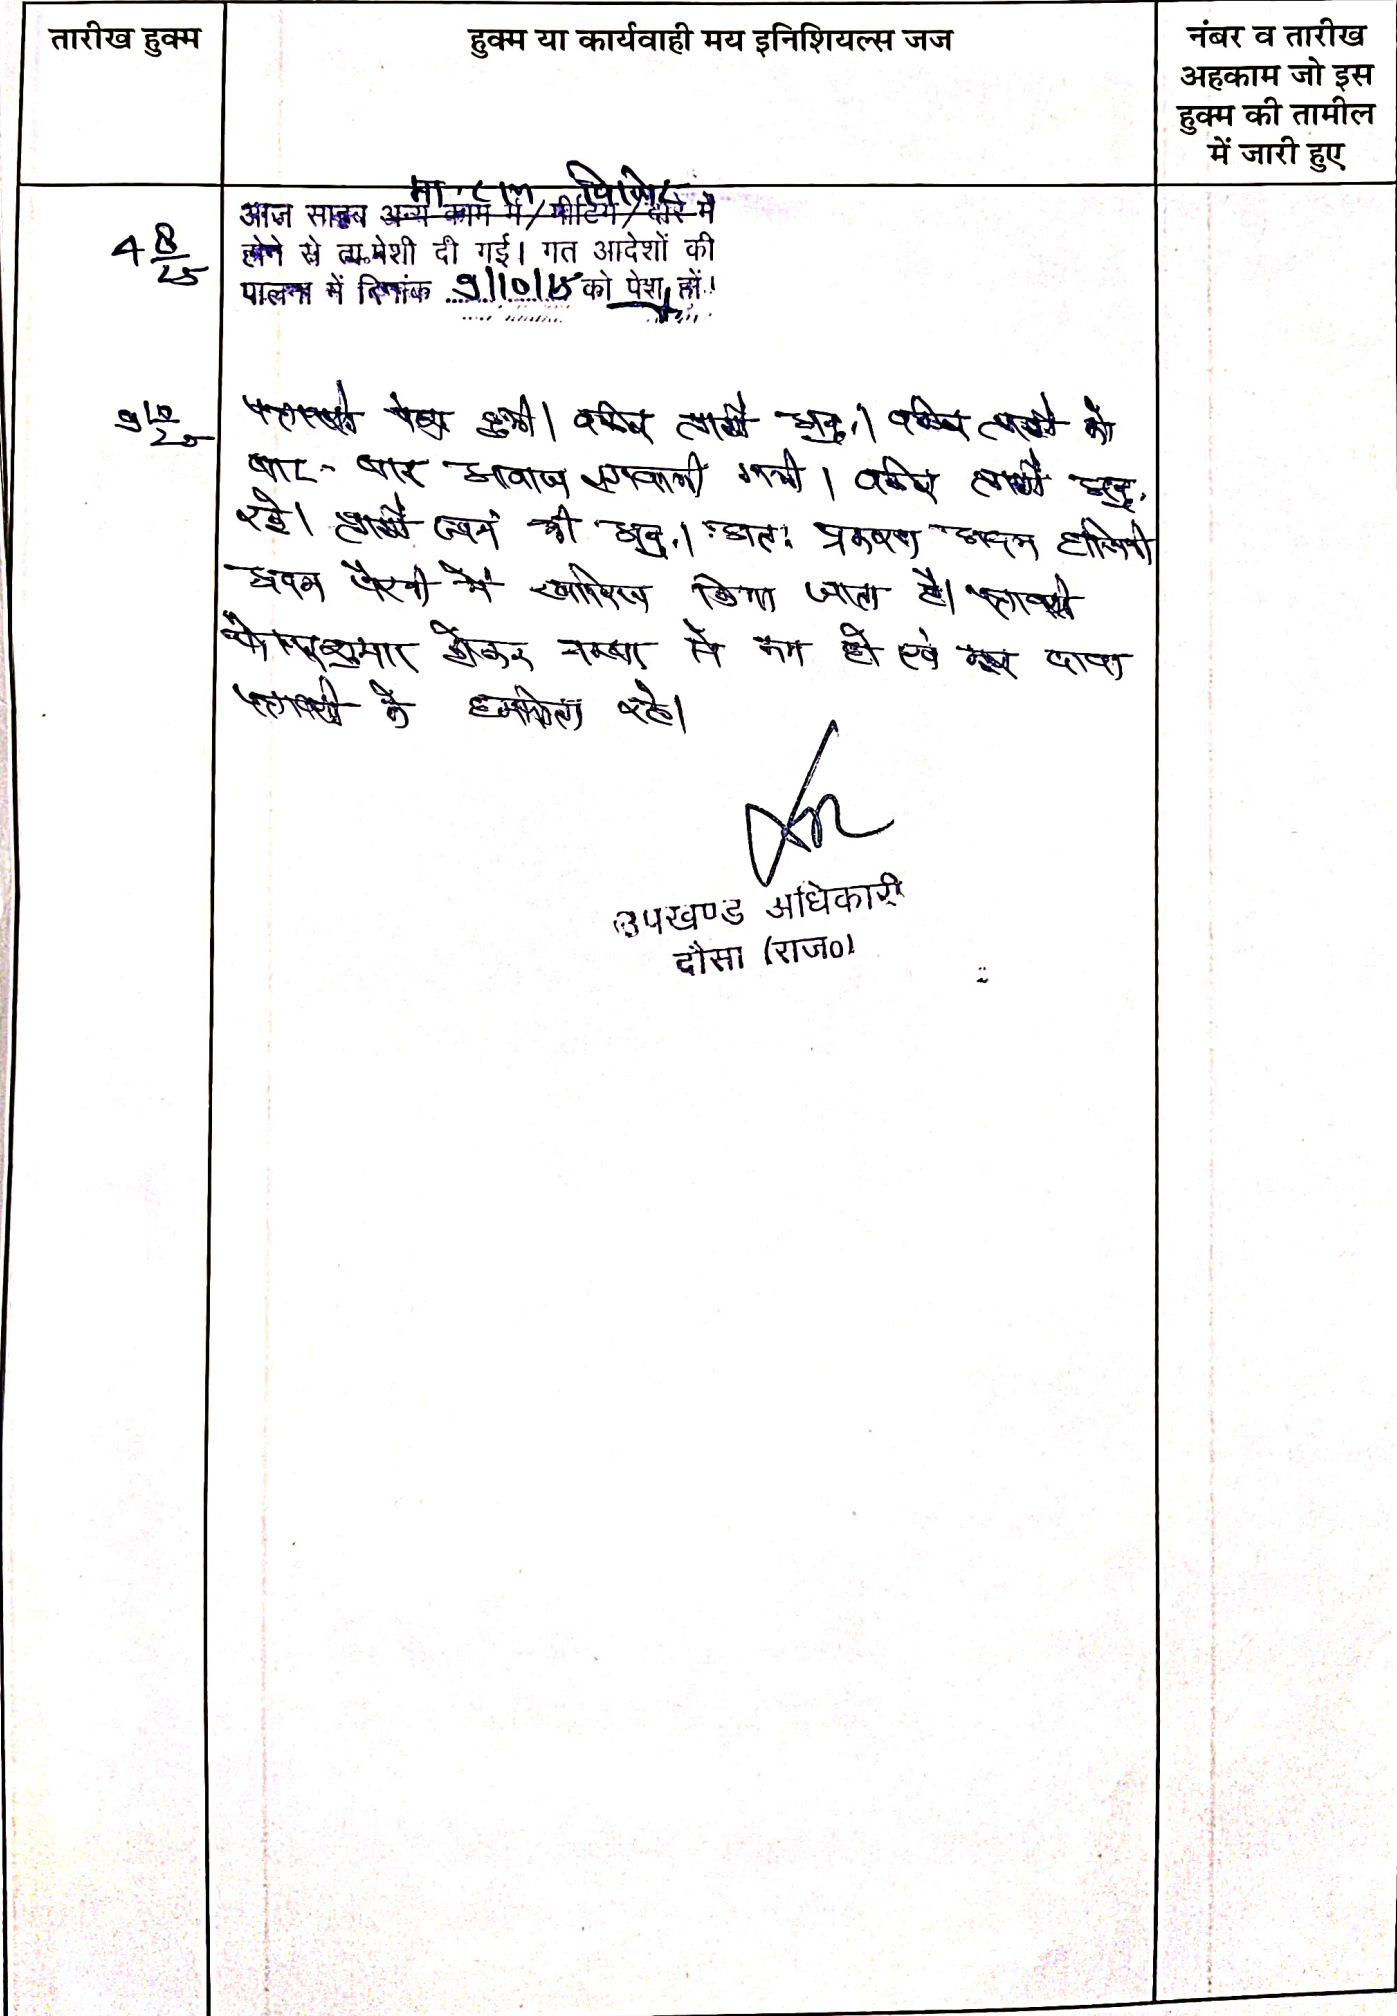 तारीख हुक्म
हुक्म या कार्यवाही मय इनिशियल्स जज
नंबर व तारीख
अहकाम जो इस
हुक्म की तामील
में जारी हुए
मा. CM विजिट
4 8/25
आज साहब अन्य काम में/मीटिंग/दौरे में
होने से ता.पेशी दी गई। गत आदेशों की
पालना में दिनांक 9/10/25 को पेश हों।
9 10/25
पत्रावली पेश हुयी। वकील प्रार्थी अनु.। वकील प्रार्थी को
बार-बार आवाज लगवायी गयी। वकील प्रार्थी अनु.
रहे। प्रार्थी स्वयं भी अनु.। अतः प्रकरण अदम हाजिरी
अदम पैरवी में खारिज किया जाता है। पत्रावली
फैसल शुमार होकर नम्बर से कम हो एवं मूल दावा
पत्रावली के हमफीता रहे।
उपखण्ड अधिकारी
दौसा (राज०)